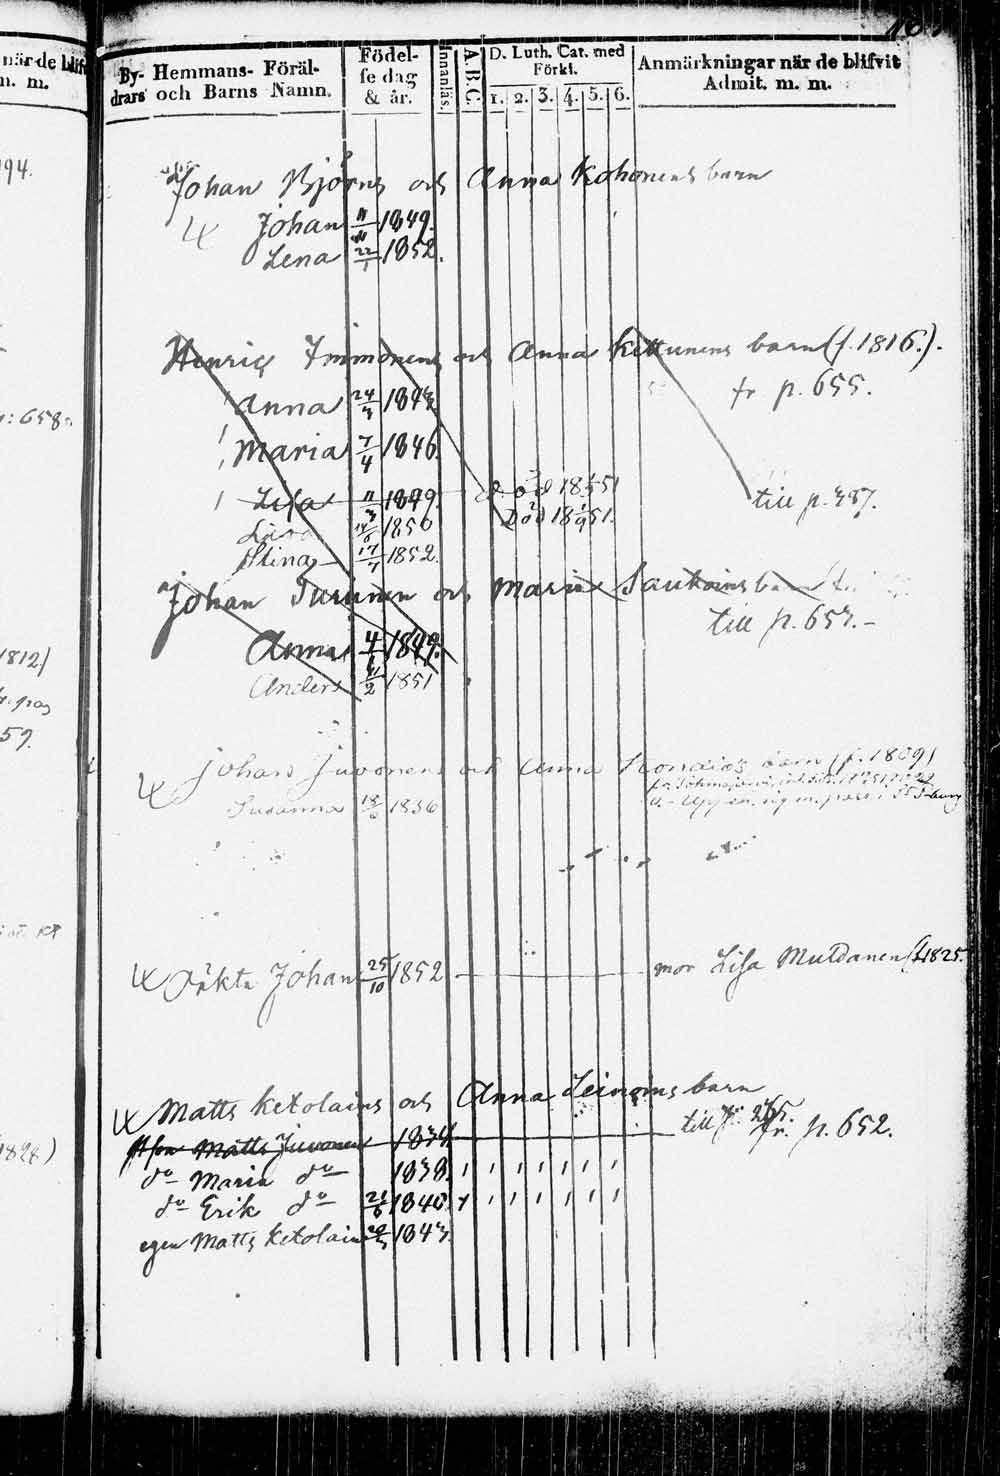 när de blifv
m. m.
194.
: 658.
1812)
59.
1828)
By- Hemmans- Föräl-
drars och Barns Namn.
Födel-
se dag
& år.
Innanläs.
A.B.C.
D. Luth. Cat. med
Förkl.
1. 2. 3. 4. 5. 6.
Anmärkningar när de blifvit
Admit. m. m.
Johan Björns och Anna Kohonens barn
Johan 11/11 1849.
Lena 22/1 1852.
Henric Immonens och Anna Kettunens barn (f. 1816.).
fr p. 655.
Anna 24/3 1843.
Maria 7/4 1846.
Lisa 11/3 1849. död 18 51
till p. 487.
1850 Död 18 51.
Stina 17/7 1852.
Johan Turunen och Maria Sautoins barn
till p. 653.
Anna 4/6 1849.
Anders 2 1851
Johan Juvonens och Anna barn (f. 1809)
Susanna 18/6 1836
Oäkta Johan 25/10 1852 mor Lisa Muldanen (f. 1825.
Matts Ketolains och Anna Leinoins barn
till p. 265.
fr. p. 652.
st son Matts Juvonen 1834
do Maria do 1838. 1 1 1 1 1 1 1
do Erik do 21/6 1840. 1 1 1 1 1 1 1
egen Matts Ketolain 1843.